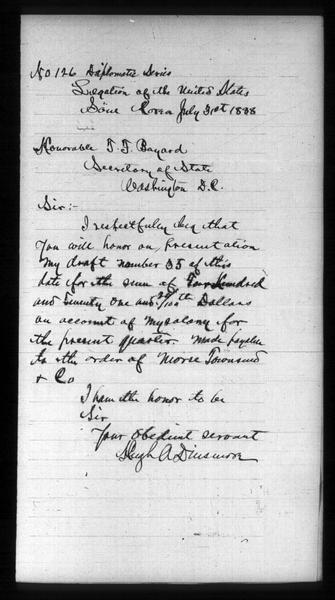 No 126 Diplomatic Series
Legation of the United States
Söul Korea July 31st 1888
Honorable T. F. Bayard
Secretary of State
Washington D.C.
Sir:-
I respectfully beg that
you will honor on presentation
my draft number 35 of this
date for the sum of Four Hundred
and Twenty one and /100th Dollars
on account of my salary for
the present quarter. Made payable
to the order of Morse Townsend
& Co
I have the honor to be
Sir
Your obedient servant
Hugh A Dinsmore